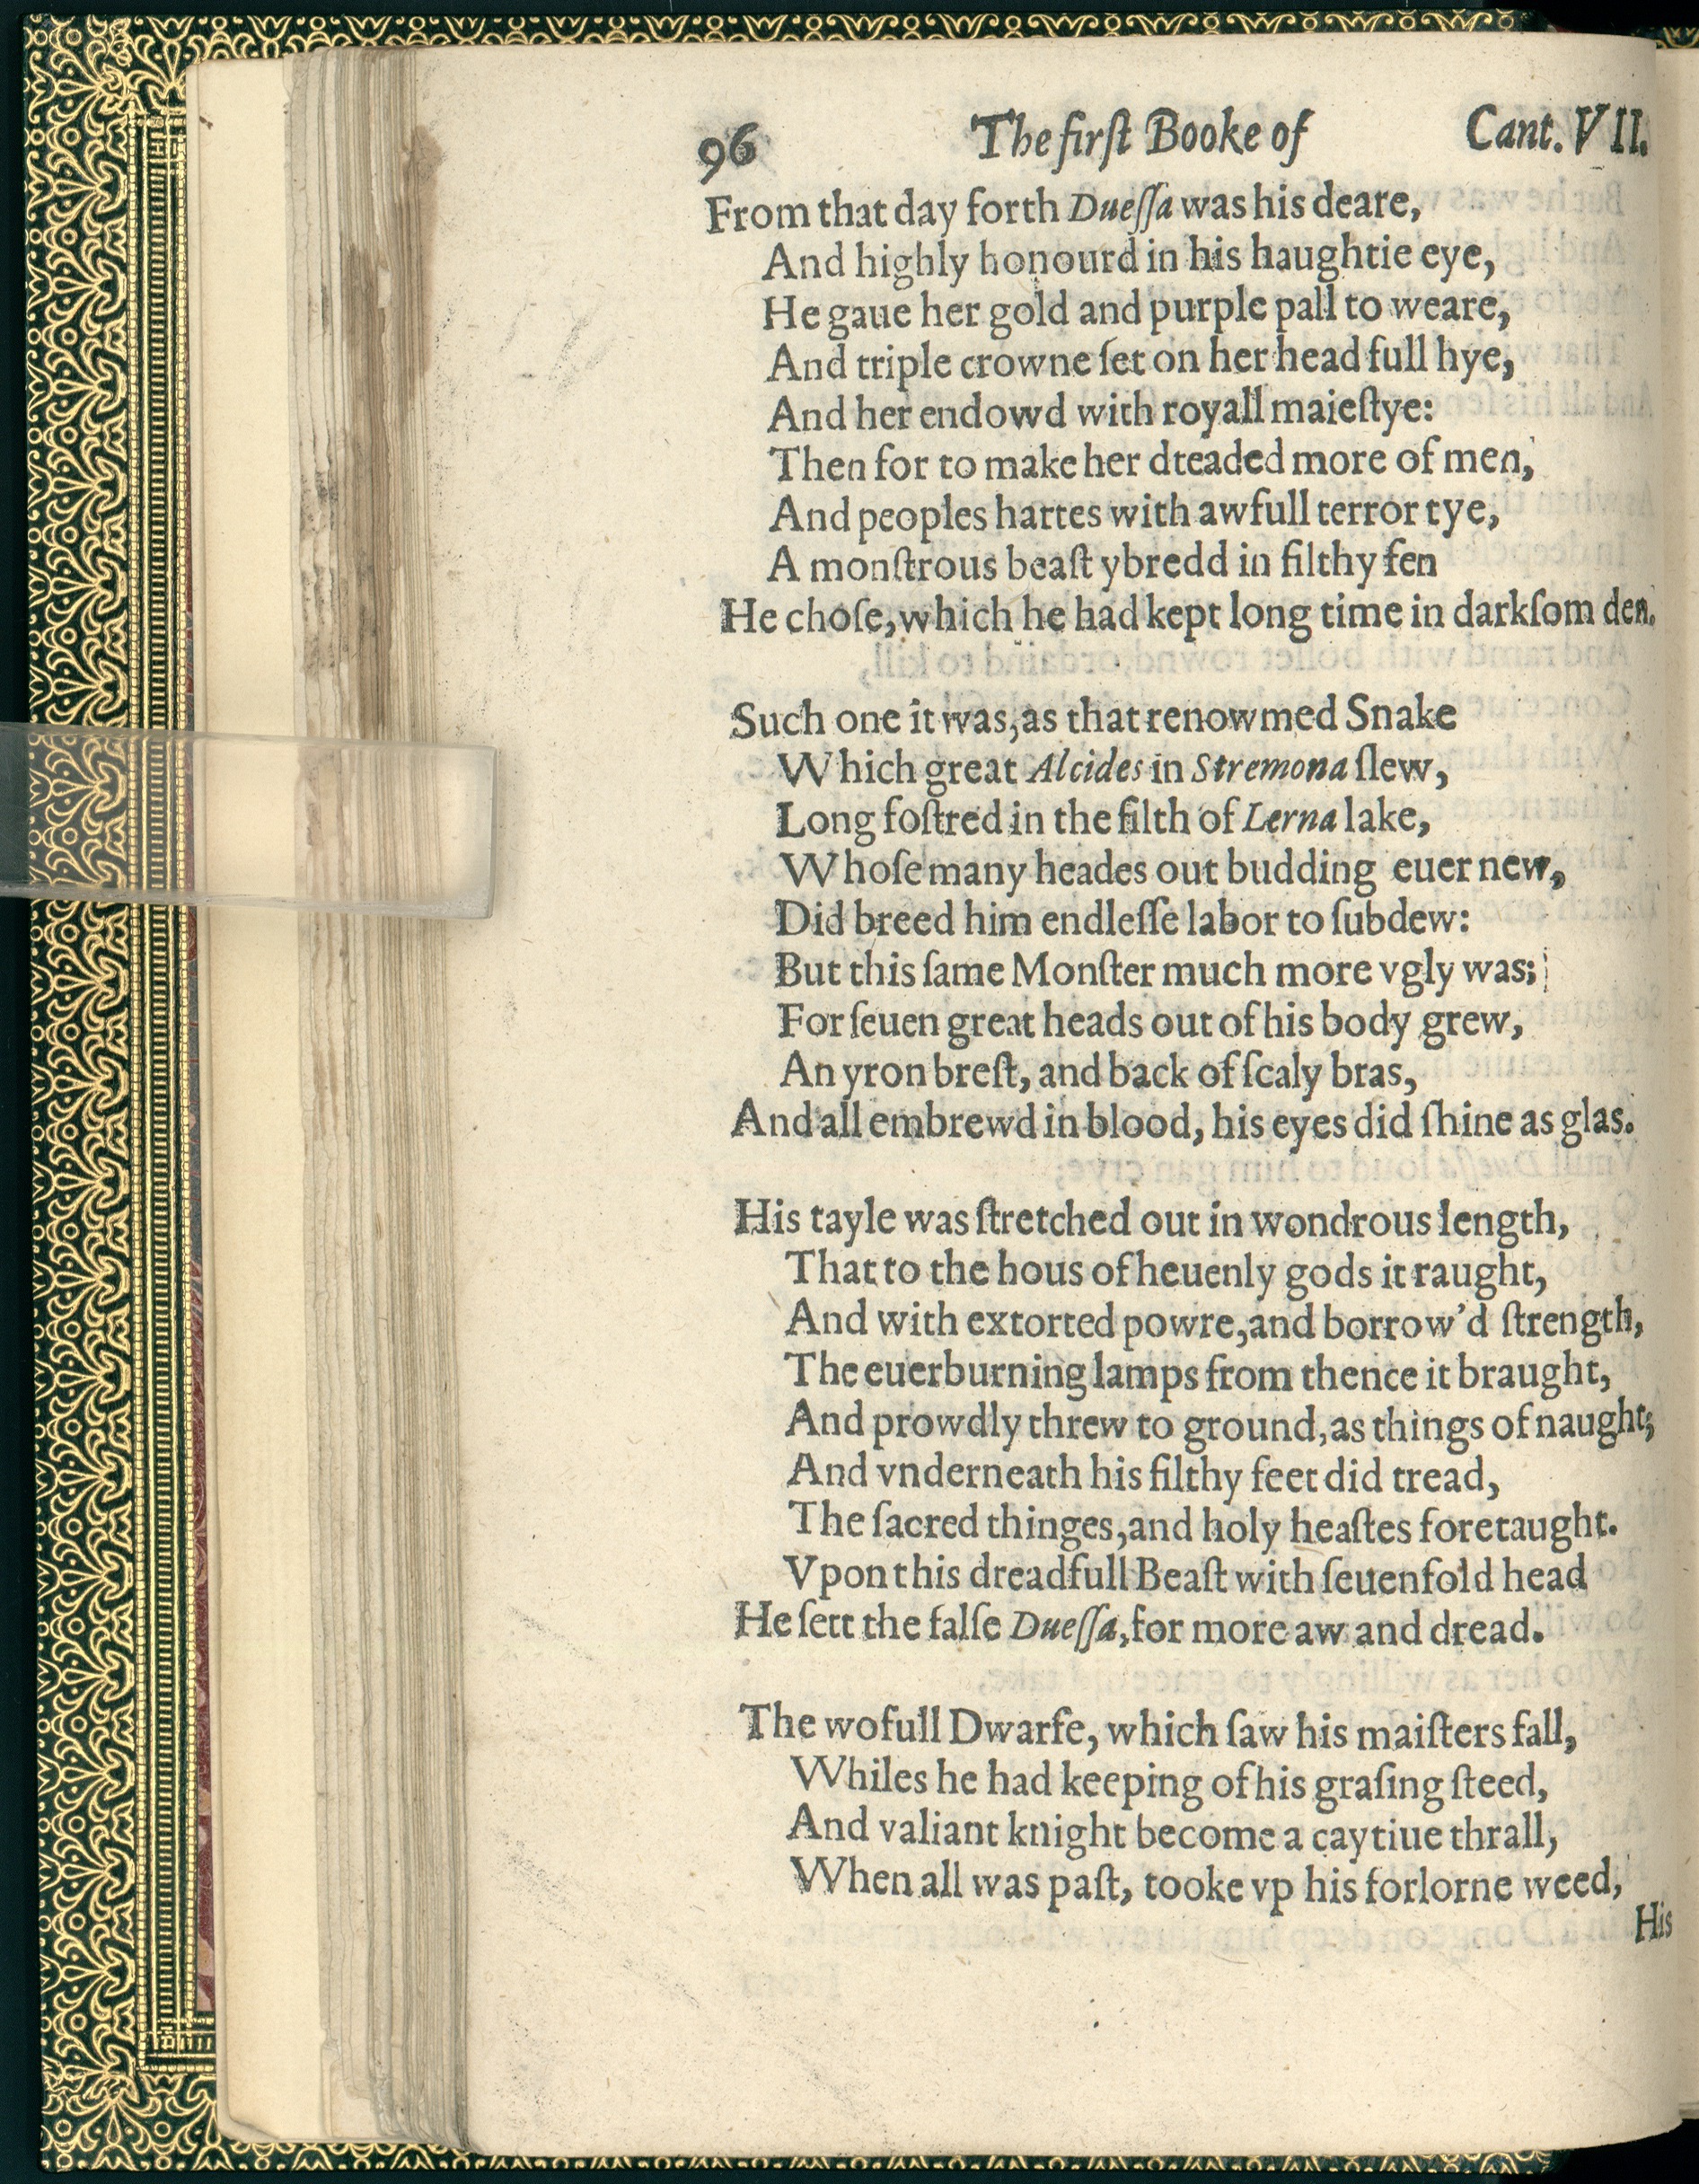 96 The firſt Booke of Cant. VII.
From that day forth Dueſſa was his deare,
And highly honourd in his haughtie eye,
He gaue her gold and purple pall to weare,
And triple crowne ſet on her head full hye,
And her endowd with royall maieſtye:
Then for to make her dteaded more of men,
And peoples hartes with awfull terror tye,
A monſtrous beaſt ybredd in filthy fen
He choſe, which he had kept long time in darkſom den.
Such one it was, as that renowmed Snake
Which great Alcides in Stremona ſlew,
Long foſtred in the filth of Lerna lake,
Whoſe many heades out budding euer new,
Did breed him endleſſe labor to ſubdew:
But this ſame Monſter much more vgly was;
For ſeuen great heads out of his body grew,
An yron breſt, and back of ſcaly bras,
And all embrewd in blood, his eyes did ſhine as glas.
His tayle was ſtretched out in wondrous length,
That to the hous of heuenly gods it raught,
And with extorted powre, and borrow'd ſtrength,
The euerburning lamps from thence it braught,
And prowdly threw to ground, as things of naught;
And vnderneath his filthy feet did tread,
The ſacred thinges, and holy heaſtes foretaught.
Vpon this dreadfull Beaſt with ſeuenfold head
He ſett the falſe Dueſſa, for more aw and dread.
The wofull Dwarfe, which ſaw his maiſters fall,
Whiles he had keeping of his graſing ſteed,
And valiant knight become a caytiue thrall,
When all was paſt, tooke vp his forlorne weed,
His